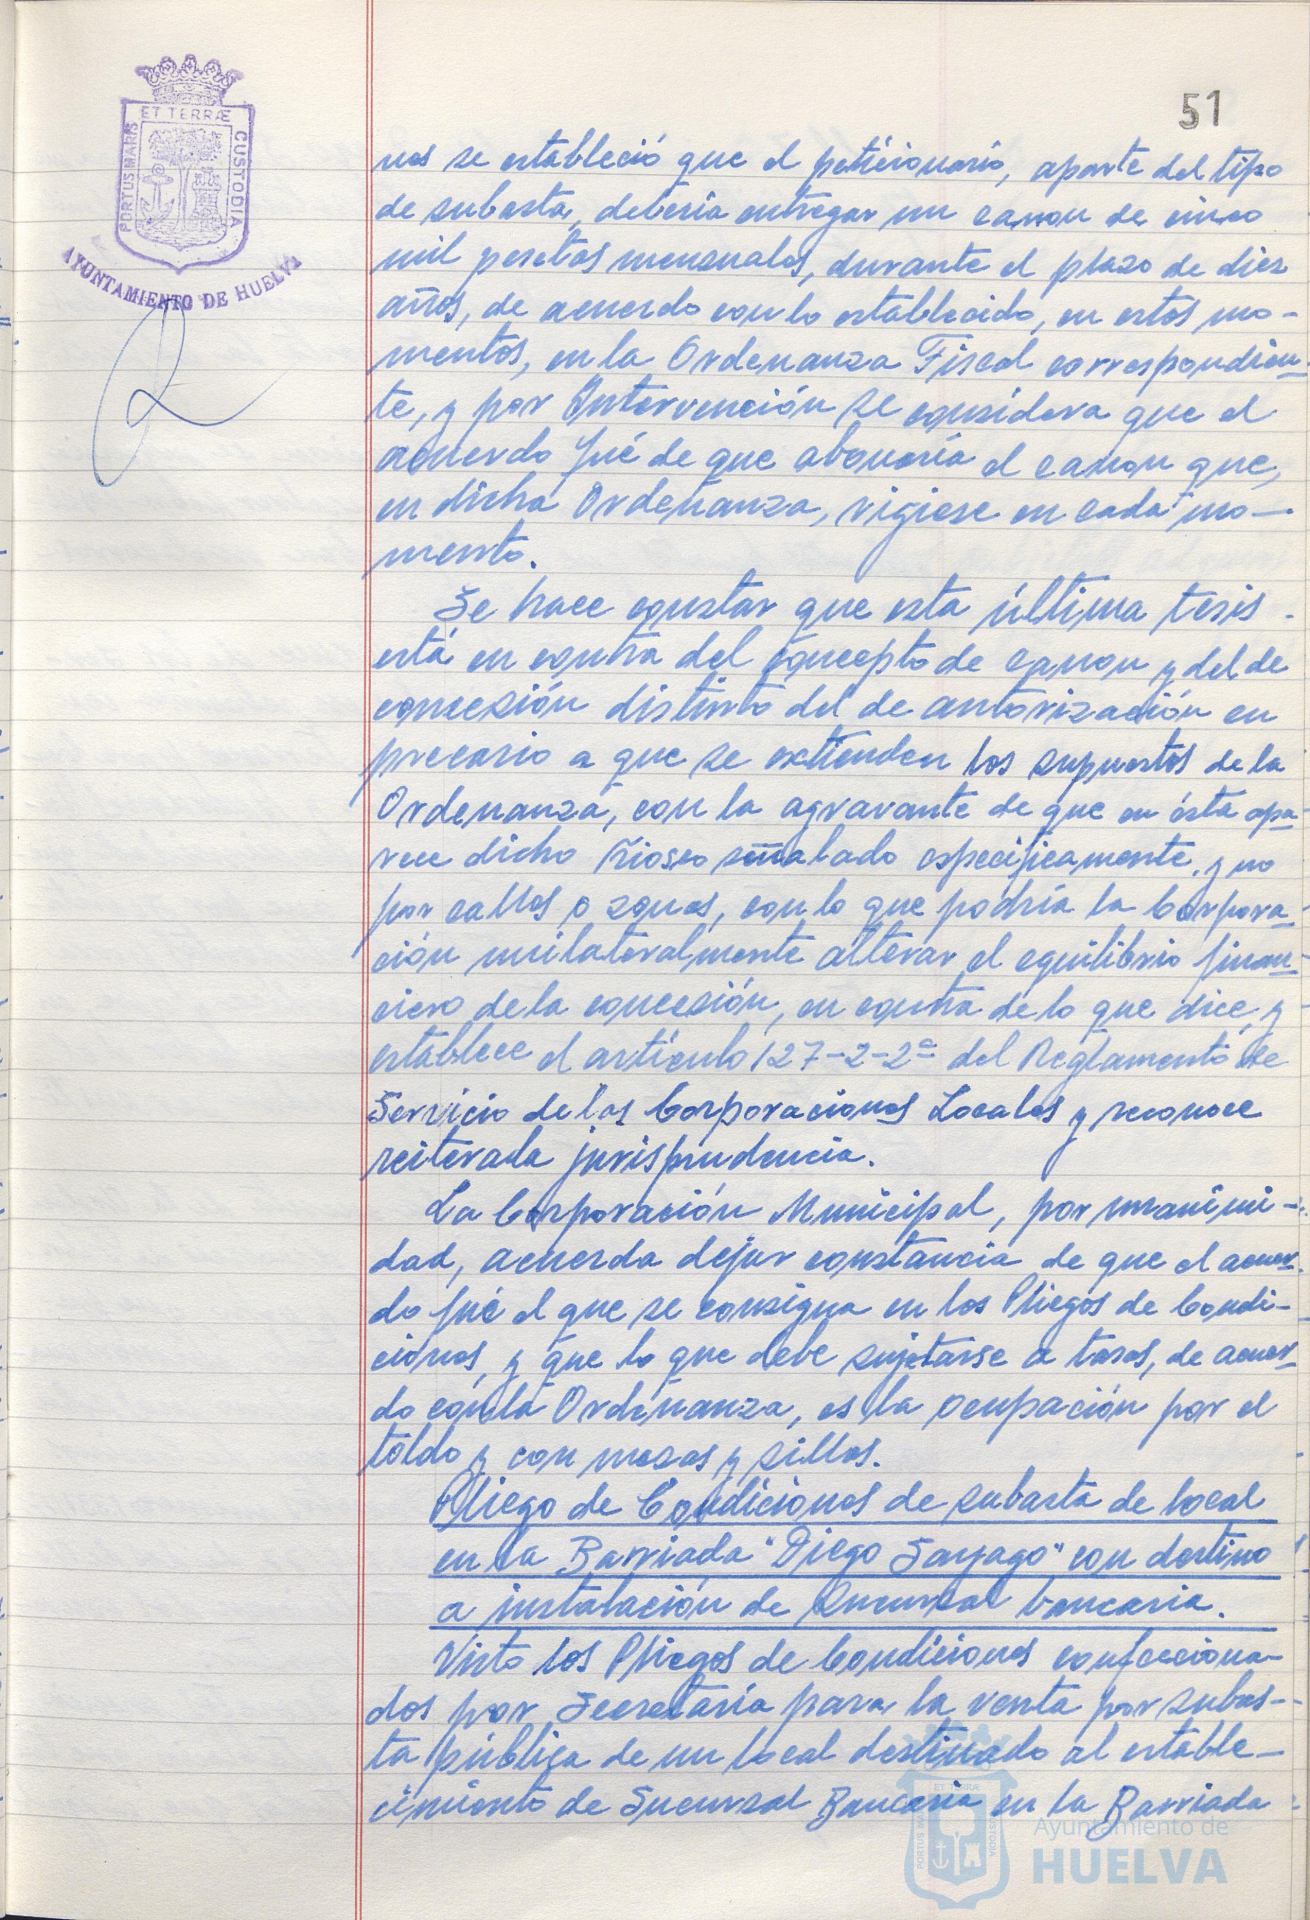 51
ET TERRÆ
PORTUS MARIS
CUSTODIA
AYUNTAMIENTO DE HUELVA
nes se estableció que el peticionario, aparte del tipo
de subasta, debería entregar un canon de cinco
mil pesetas mensuales, durante el plazo de diez
años, de acuerdo con lo establecido, en estos mo-
mentos, en la Ordenanza Fiscal correspondien-
te, y por Intervención se considera que el
acuerdo fué de que abonaría el canon que,
en dicha Ordenanza, rigiese en cada mo-
mento.
Se hace constar que esta última tesis
está en contra del concepto de canon y del de
concesión distinto del de autorización en
precario a que se extienden los supuestos de la
Ordenanza, con la agravante de que en ésta apa-
rece dicho kiosco señalado especificamente, y no
por calles o zonas, con lo que podría la Corpora-
ción unilateralmente alterar el equilibrio finan-
ciero de la concesión, en contra de lo que dice y
establece el artículo 127-2-2ª del Reglamento de
Servicio de las Corporaciones Locales y reconoce
reiterada jurisprudencia.
La Corporación Municipal, por unanimi-
dad, acuerda dejar constancia de que el acuer-
do fué el que se consigna en los Pliegos de Condi-
ciones, y que lo que debe sujetarse a tasas, de acuer-
do con la Ordenanza, es la ocupación por el
toldo y con mesas y sillas.
Pliego de Condiciones de subasta de local
en la Barriada "Diego Sayago" con destino
a instalación de Sucursal bancaria.
Visto los Pliegos de Condiciones confecciona-
dos por Secretaría para la venta por subas-
ta pública de un local destinado al estable-
cimiento de Sucursal Bancaria en la Barriada
Ayuntamiento de
HUELVA